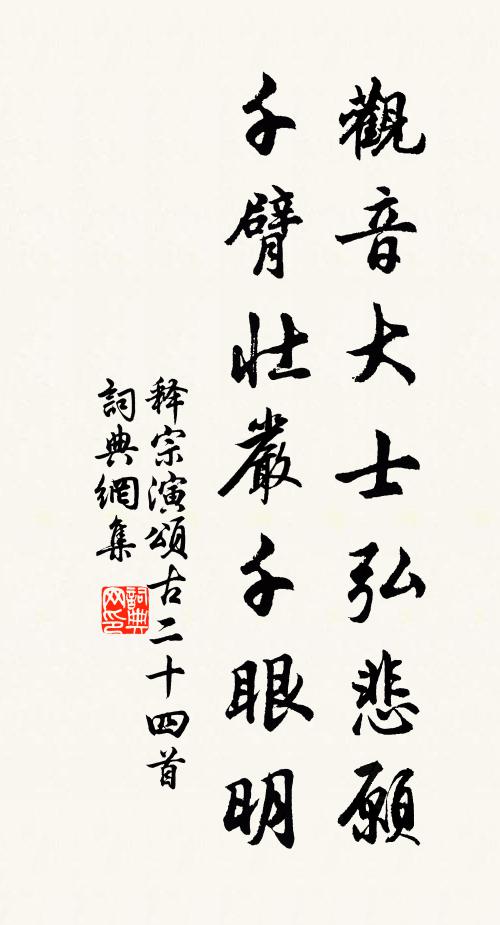 觀音大士弘悲愿
千臂壮嚴千眼明
释宗演頌古二十四首
詞典網集
詞典网印